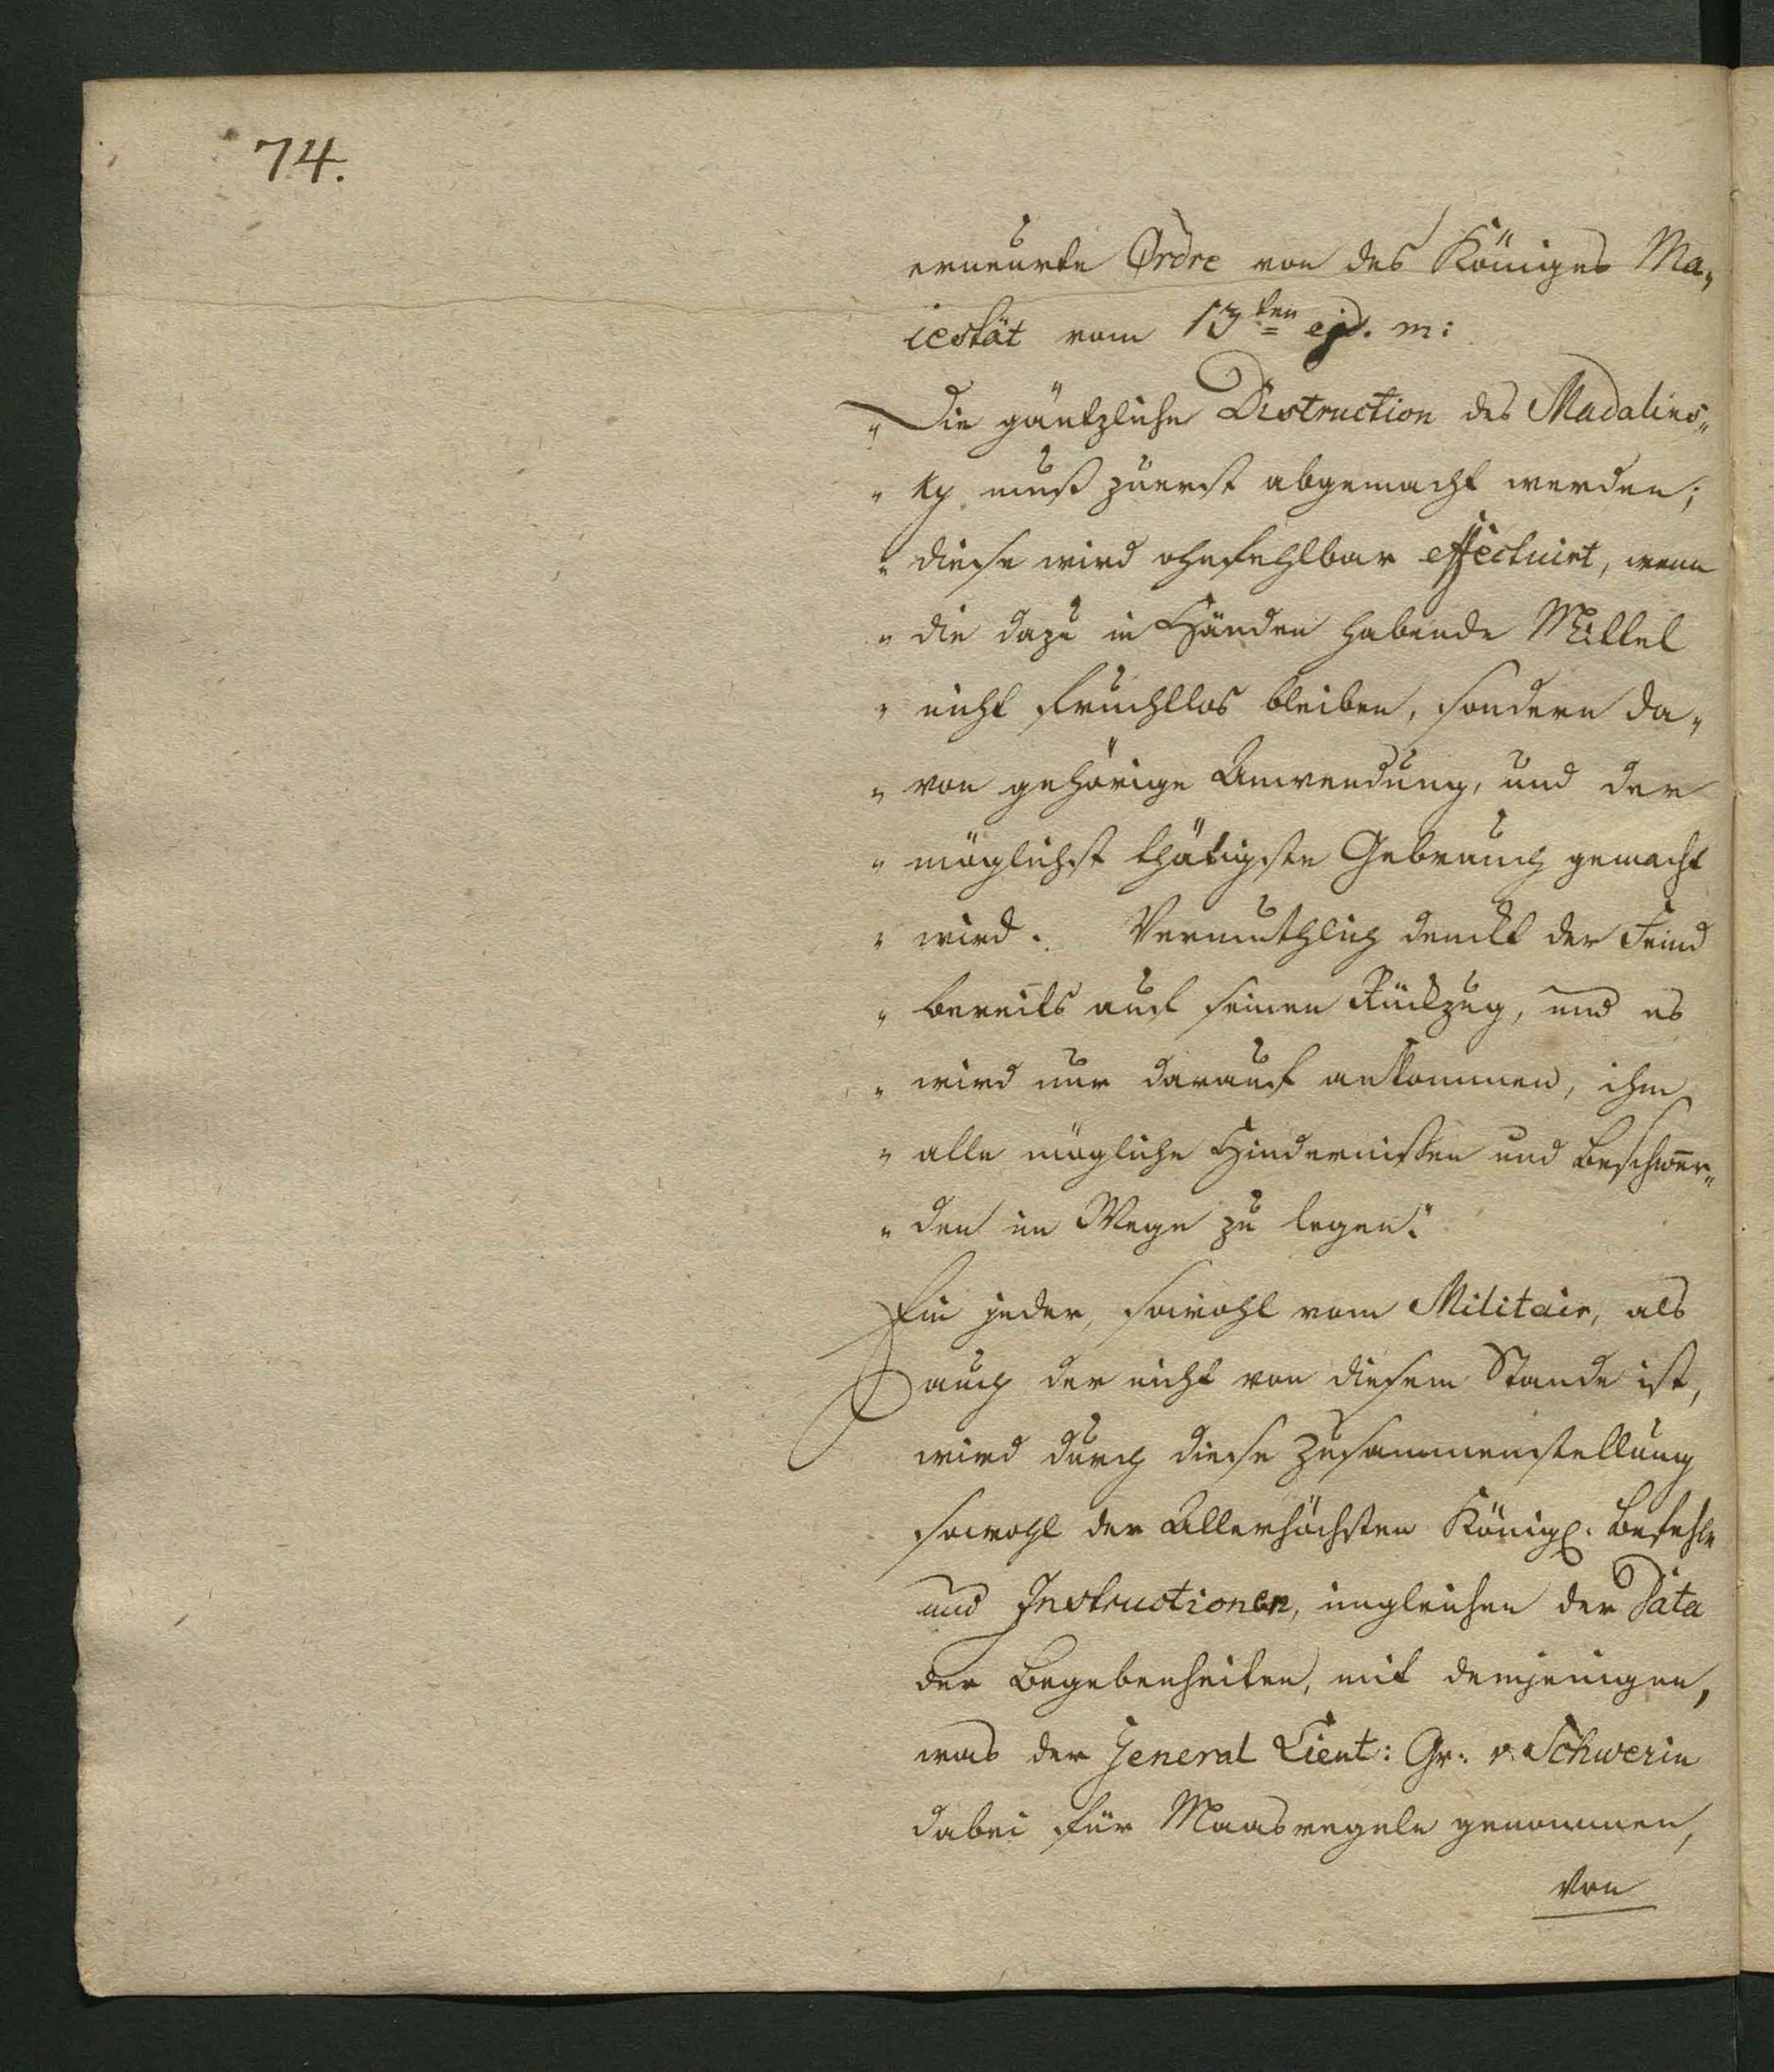 74.
erneurte Ordre von des Königes Ma„
iestät vom 13ten ejd. m:
„ Die gäntzliche Distruction des Madalins„
„ ky muß zuerst abgemacht werden;
„ diese wird ohnfehlbar effectuirt, wenn
„ die dazu in Händen habende Mittel
„ nicht fruchtlos bleiben, sondern da„
„ von gehörige Anwendung, und der
„ möglichst thätigste Gebrauch gemacht
„ wird. Vermuthlich denckt der Feind
„ bereits auf seinen Rückzug, und es
„ wird nur darauf ankommen, ihm
„ alle mögliche Hindernißen und Beschwer„
„ den im Wege zu legen."
Ein jeder, sowohl vom Militair, als
auch der nicht von diesem Stande ist,
wird durch diese Zusammenstellung
sowohl der Allerhöchsten Königl. Befehle
und Instructionen, imgleichen der Data
der Begebenheiten, mit demjenigen,
was der General Lieut: Gr. v. Schwerin
dabei für Maasregeln genommen,
von